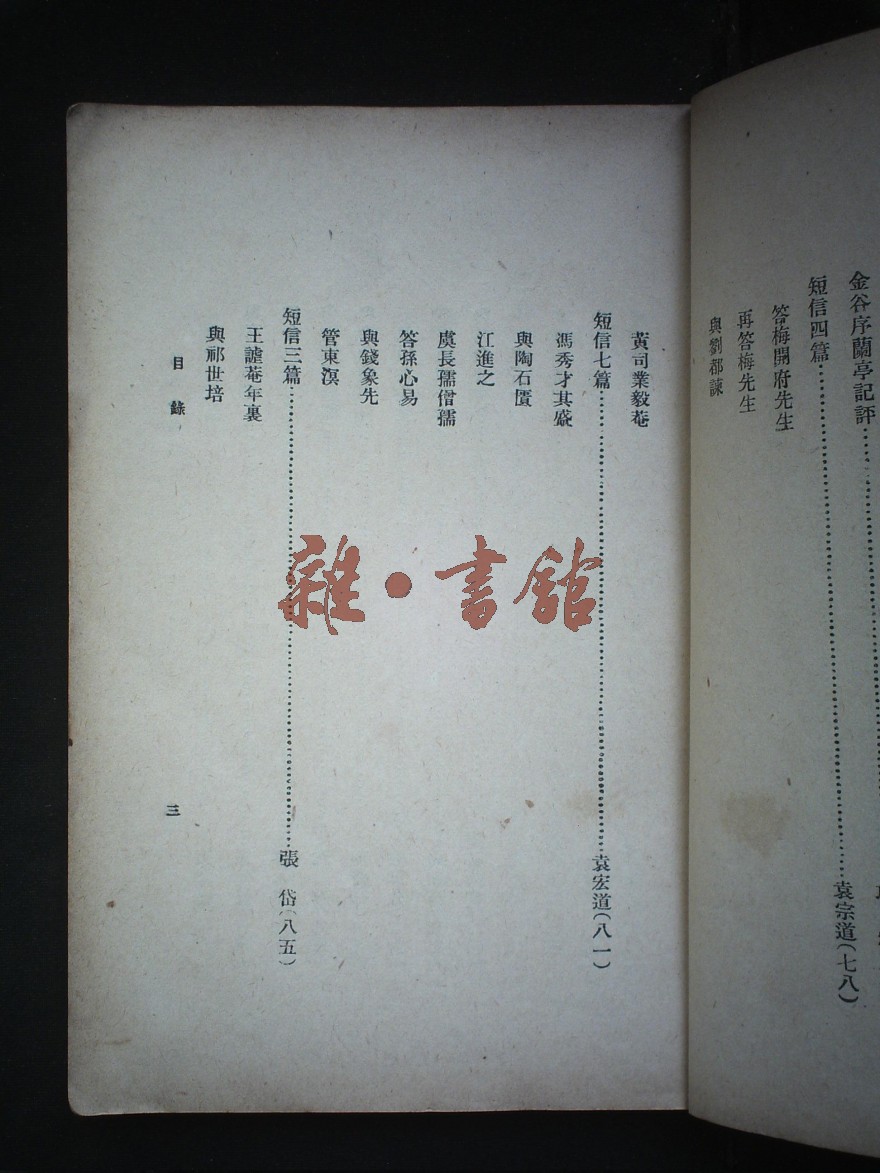 金谷序蘭亭記評
短信四篇 袁宗道(七八)
答梅開府先生
再答梅先生
與劉都諫
黃司業毅菴
短信七篇 袁宏道(八一)
馮秀才其盛
與陶石匱
江進之
虞長孺僧孺
答孫心易
與錢象先
管東溟
短信三篇 張岱(八五)
王謔菴年裏
與祁世培
目錄
三
雜·書館